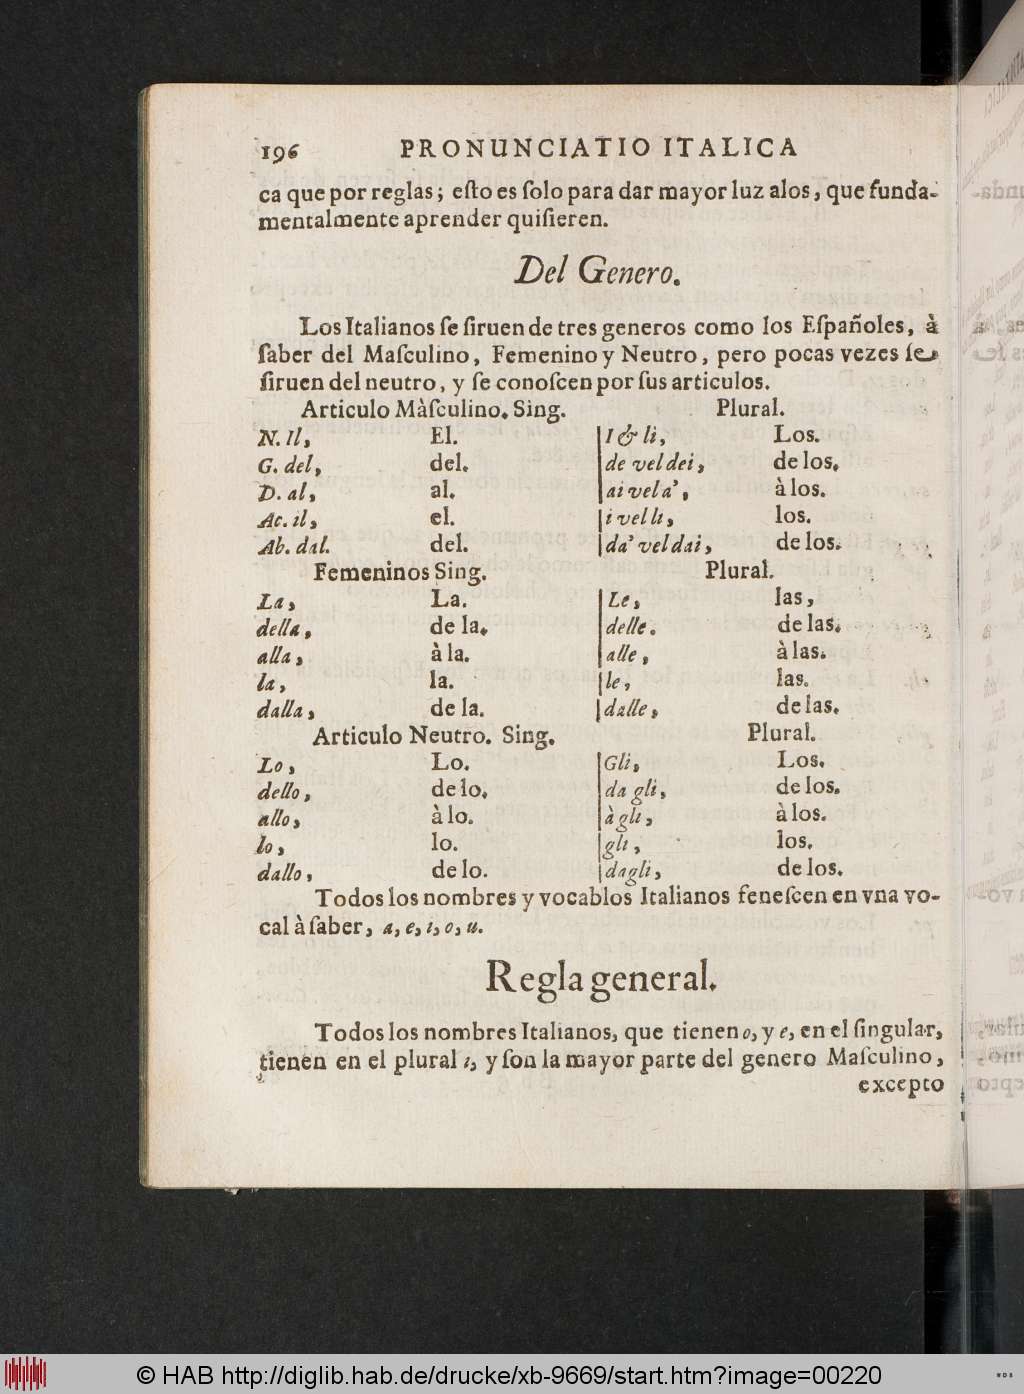 196 PRONUNCIATIO ITALICA
ca que por reglas; eſto es ſolo para dar mayor luz alos, que funda-
mentalmente aprender quiſieren.
Del Genero.
Los Italianos ſe ſiruen de tres generos como los Eſpañoles, à
ſaber del Maſculino, Femenino y Neutro, pero pocas vezes ſe
ſiruen del neutro, y ſe conoſcen por ſus articulos.
Articulo Màſculino. Sing. Plural.
N. Il, El. I & li, Los.
G. del, del. de vel dei, de los.
D. al, al. ai vel a', à los.
Ac. il, el. i vel li, los.
Ab. dal. del. da' vel dai, de los.
Femeninos Sing. Plural.
La, La. Le, las,
della, de la. delle. de las.
alla, à la. alle, à las.
la, la. le, las.
dalla, de la. dalle, de las.
Articulo Neutro. Sing. Plural.
Lo, Lo. Gli, Los.
dello, de lo. da gli, de los.
allo, à lo. à gli, à los.
lo, lo. gli, los.
dallo, de lo. dagli, de los.
Todos los nombres y vocablos Italianos feneſcen en vna vo-
cal à ſaber, a, e, i, o, u.
Regla general.
Todos los nombres Italianos, que tienen o, y e, en el ſingular,
tienen en el plural i, y ſon la mayor parte del genero Maſculino,
excepto
© HAB http://diglib.hab.de/drucke/xb-9669/start.htm?image=00220